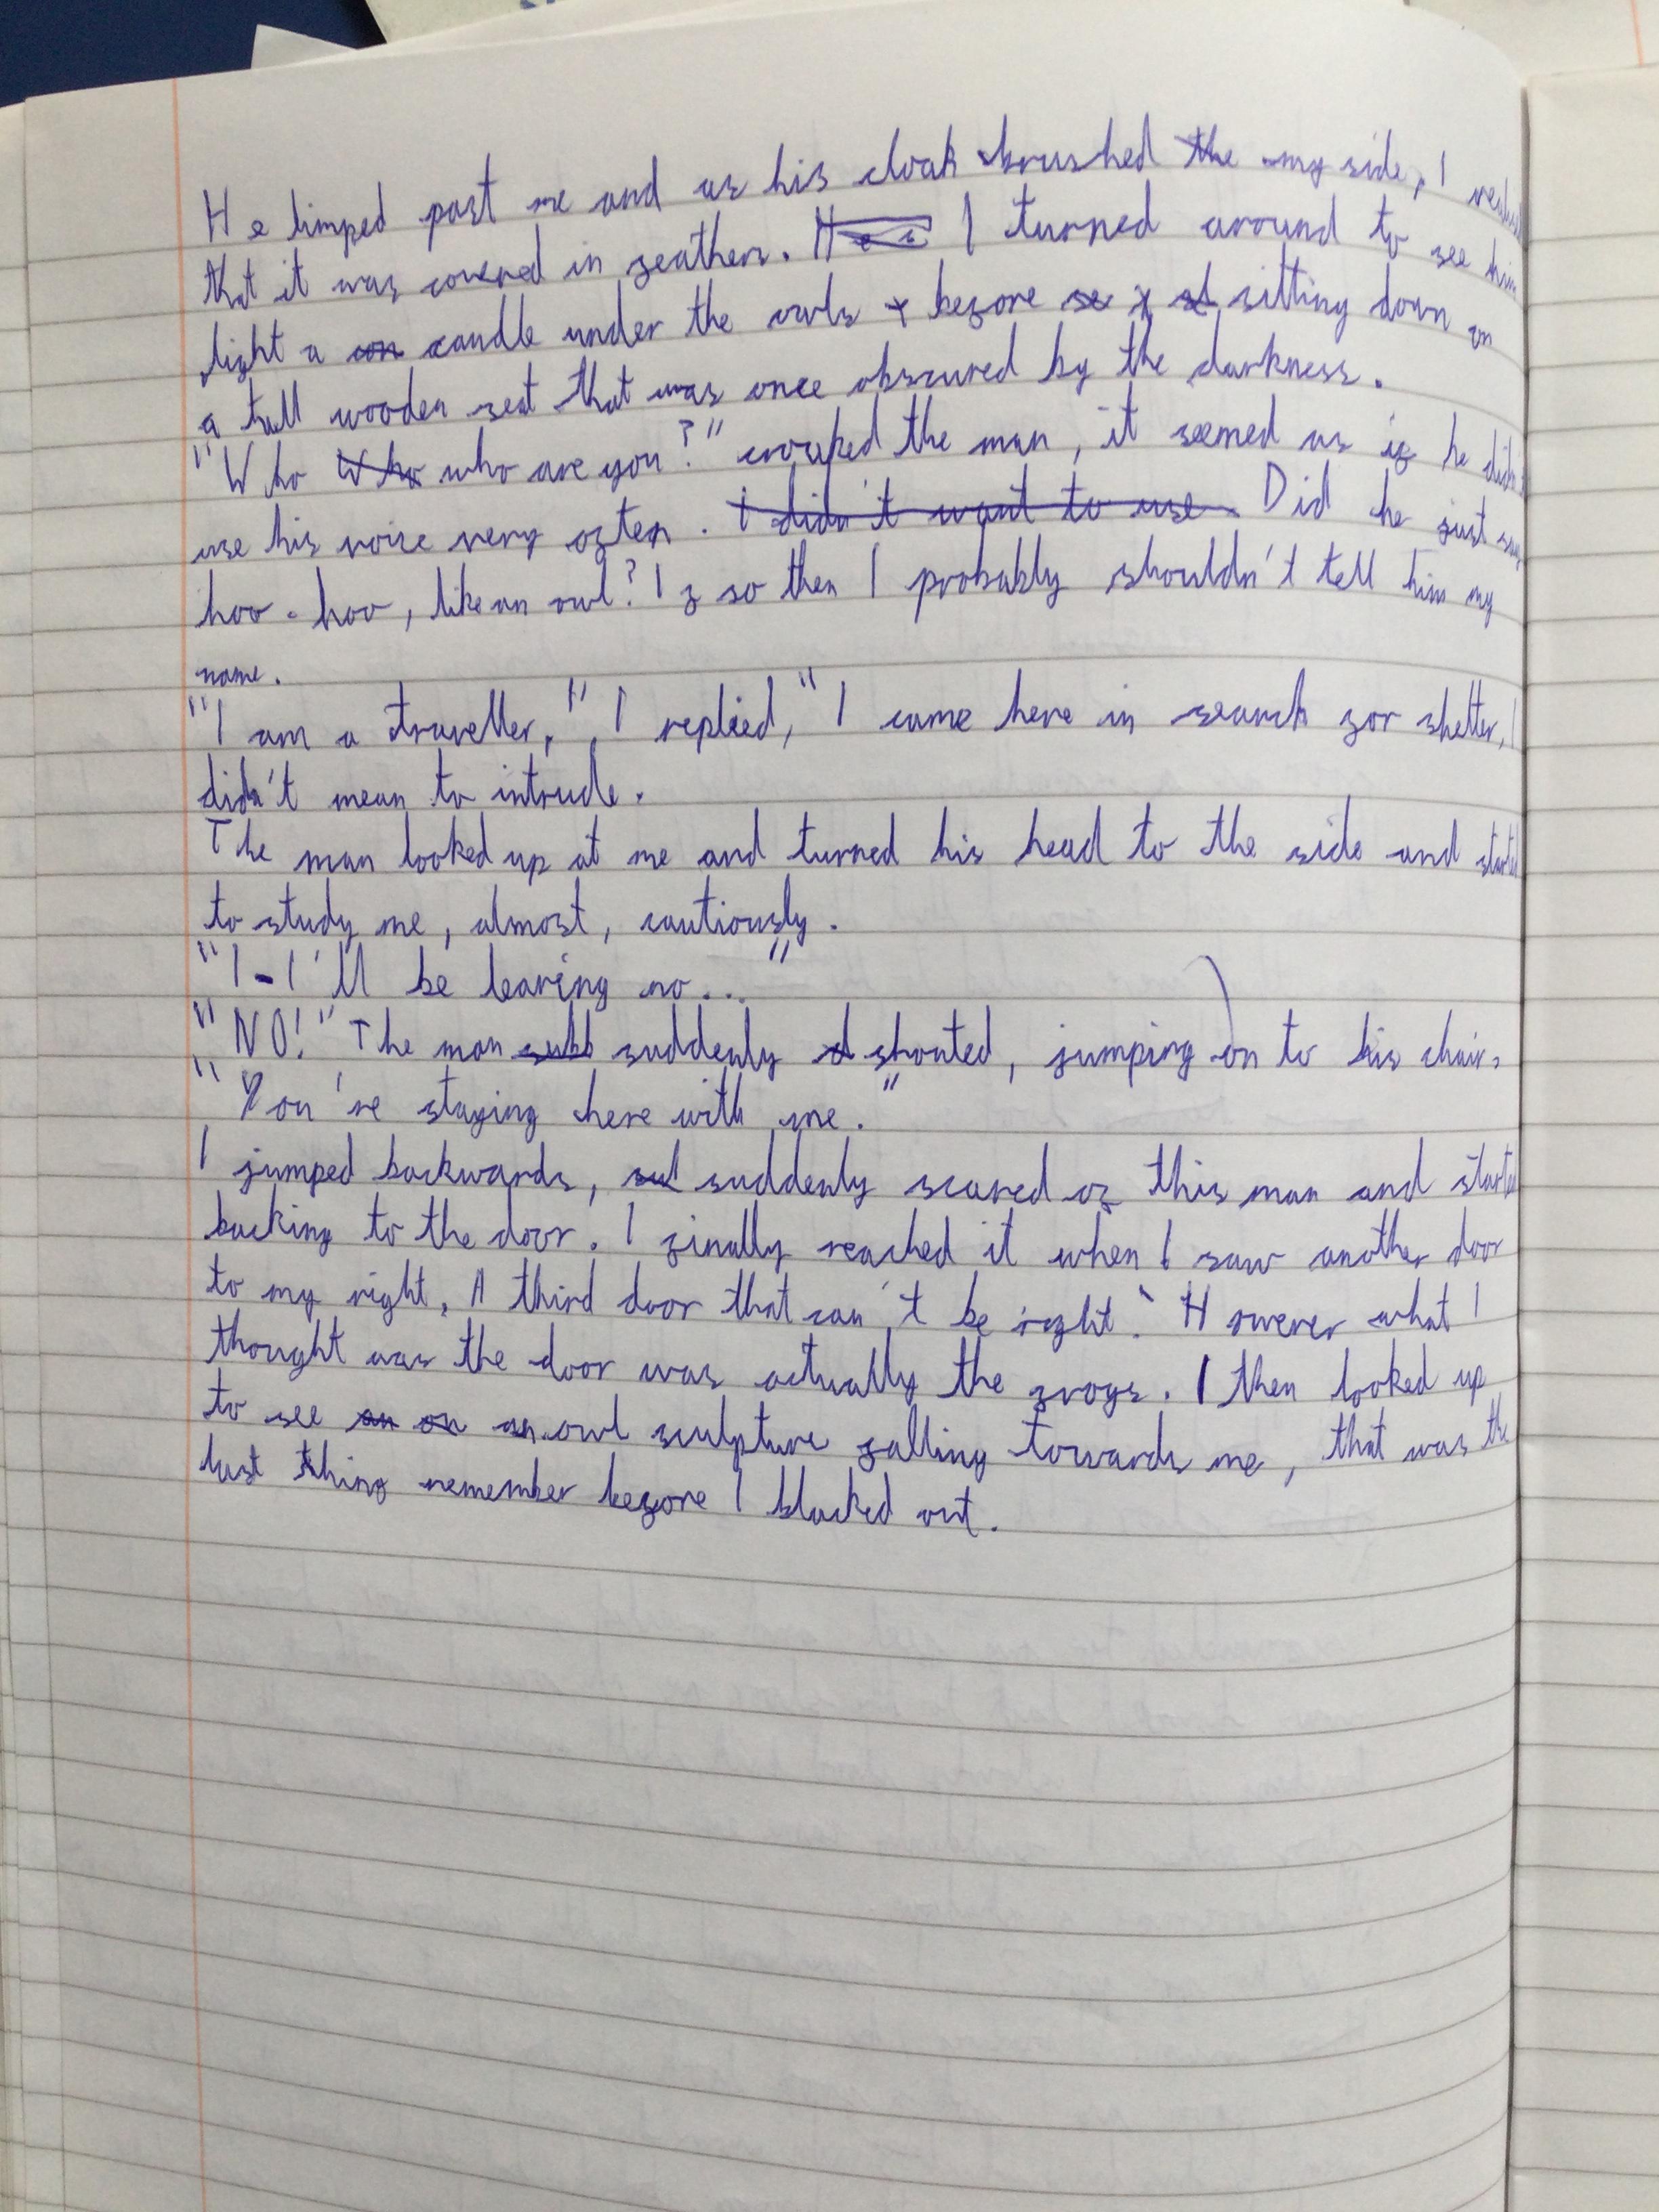 He limped past me and as his cloak brushed the my side, I
that it was covered in feathers. He is I turned around to see him
light a can candle under the owls before se sitting down on
a tall wooden seat that was once obscured by the darkness.
"Who Who who are you?" croaked the man, it seemed as if he didn't
use his voice very often. I didn't want to use. Did he just say
hoo-hoo, like an owl? If so then I probably shouldn't tell him my
name.
"I am a traveller," I replied, "I came here in search for shelter, I
didn't mean to intrude.
The man looked up at me and turned his head to the side and started
to study me, almost, cautiously.
"I-I'll be leaving no..."
"NO!" The man sudd suddenly shouted, jumping on to his chair.
"You're staying here with me."
I jumped backwards, sud suddenly scared of this man and started
backing to the door. I finally reached it when I saw another door
to my right. A third door that can't be right. However what I
thought was the door was actually the frogs. I then looked up
to see an on an owl sculpture falling towards me, that was the
last thing remember before I blacked out.